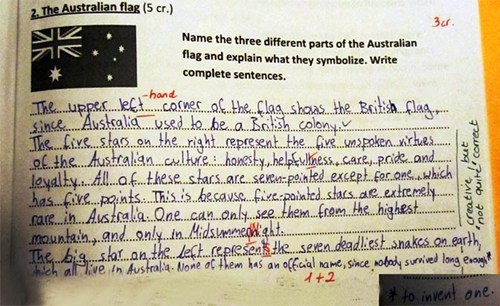 2. The Australian flag (5 cr.)
3cr.
Name the three different parts of the Australian
flag and explain what they symbolize. Write
complete sentences.
-hand
The upper left corner of the flag shows the British flag,
since Australia used to be a British colony.
The five stars on the right represent the five unspoken virtues
of the Australian culture: honesty, helpfullness, care, pride and
loyalty. All of these stars are seven-pointed except for one which
has five points. This is because five-pointed stars are extremely
rare in Australia. One can only see them from the highest
mountain, and only in Midsummernight.
The big star on the left represents the seven deadliest snakes on earth,
which all live in Australia. None of them has an official name, since nobody survived long enough*
* to invent one.
1+2
creative, but
not quite correct